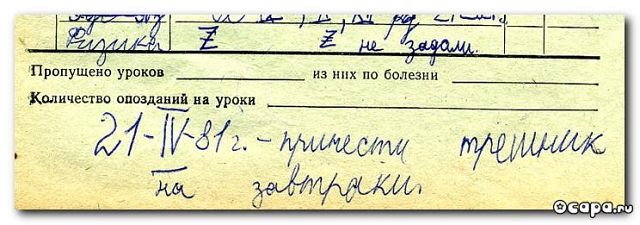 Физика Z Z не задали.
Пропущено уроков из них по болезни
Количество опозданий на уроки
21-IV-81г. - принести трешник
на завтраки.
Ocapa.ru